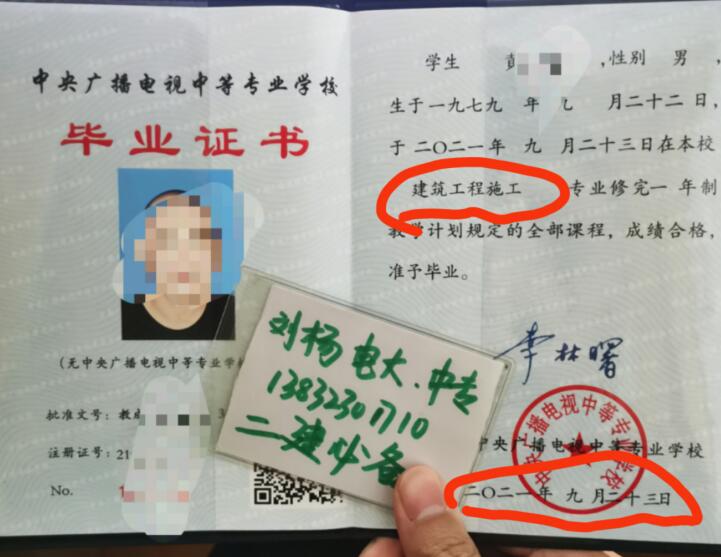 中央广播电视中等专业学校
毕业证书
(无中央广播电视中等专业学校
批准文号：教成
注册证号：21
No. 1
学生 彭 ,性别 男 ,
生于一九七九 年 九 月二十二日,
于二〇二一年 九 月二十三日在本校
建筑工程施工 专业修完一 年制
教学计划规定的全部课程，成绩合格，
准予毕业。
李林曙
中央广播电视中等专业学校
中央广播电视中等专业学校
二〇二一年 九 月二十三日
刘杨电大、中专
13832301710
二建必备